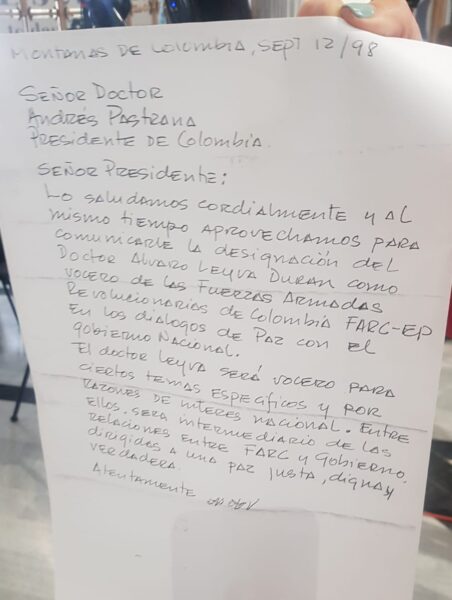 Montañas de Colombia, Sept 12/98
Señor Doctor
Andrés Pastrana
Presidente de Colombia.
Señor Presidente:
Lo saludamos cordialmente y al
mismo tiempo aprovechamos para
comunicarle la designación del
Doctor Alvaro Leyva Duran como
vocero de las Fuerzas Armadas
Revolucionarias de Colombia FARC-EP
En los dialogos de Paz con el
gobierno Nacional.
El doctor Leyva será vocero para
ciertos temas específicos y por
razones de interes nacional. Entre
Ellos. será intermediario de las
relaciones entre FARC y gobierno,
dirigidos a una paz justa, digna y
verdadera.
Atentamente